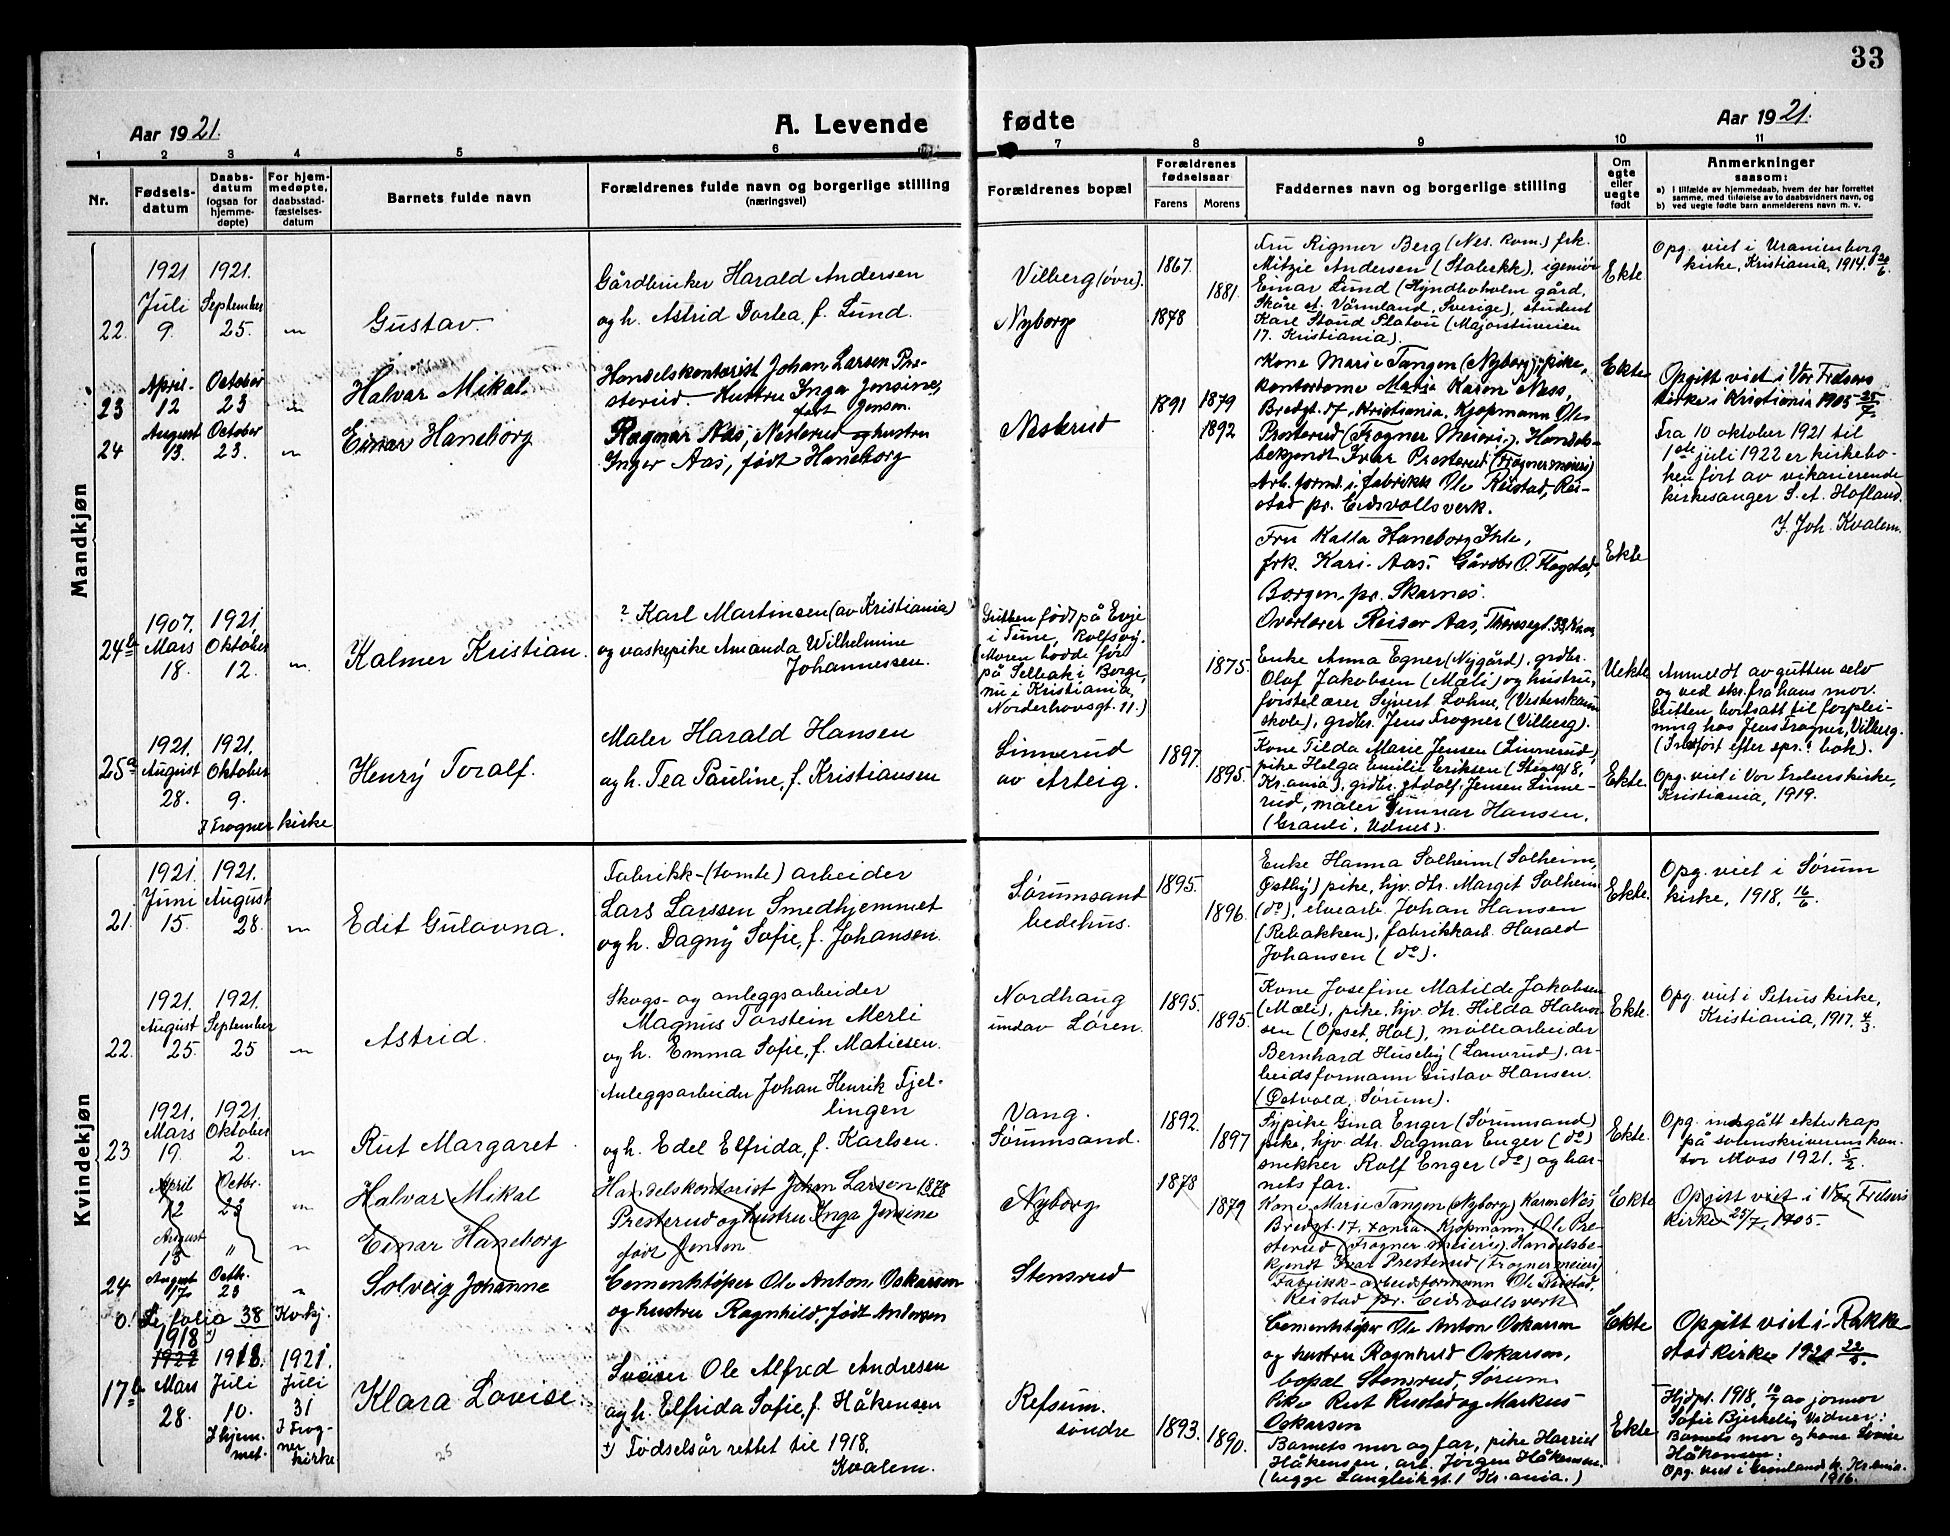 33
Aar 1921.
A. Levende
fødte
Aar 1921.
1 2 3 4 5 6 7 8 9 10 11
Nr.
Fødsels-
datum
Daabs-
datum
(ogsaa for
hjemme-
døpte)
For hjem-
medøpte,
daabsstad-
fæstelses-
datum
Barnets fulde navn
Forældrenes fulde navn og borgerlige stilling
(næringsvei)
Forældrenes bopæl
Forældrenes
fødselsaar
Farens
Morens
Faddernes navn og borgerlige stilling
Om
egte
eller
uegte
født
Anmerkninger
saasom:
a) i tilfælde av hjemmedaab, hvem der har forrettet
samme, med tilføielse av to daabsvidners navn, og
b) ved uegte fødte barn anmelderens navn m. v.
Mandkjøn
22
1921
Juli
9.
1921.
September
25.
"
Gustav.
Gårdbruker Harald Andersen
og h. Astrid Dortea, f. Lund.
Vilberg (øvre).
Nyborg
1867.
1881.
1878
Fru Rigmor Berg (Nes. Rom.) frk.
Mitzie Andersen (Stabekk), igeniør
Einar Lund (Hyndboholm gård,
Skåre st. Värmland, Sverige), student
Karl Stoud Platou (Majorstuveien
17. Kristiania).
Ekte
Opg. viet i Uranienborg
kirke, Kristiania, 1914. 20/6.
23
April
12
October
23
"
Halvar Mikal.
Handelskontorist Johan Larsen Pre-
sterud. Hustru Inga Jensine,
født Jensen.
1879
Kone Marie Tangen (Nyborg), pike,
kontordame Marie Karen Næss,
Bredgt. 17, Kristiania, Kjøpmann Ole
Presterud (Frogner Meieri). Handels-
bekjendt Ivar Presterud (Frogner meieri)
Arb. form. i fabrikk Ole Reistad, Rei-
stad pr. Eidsvollsverk.
Ekte
Opgitt viet i Vor Frelsers
kirke i Kristiania 1905 25/7.
24
August
13.
October
23.
"
Einar Haneborg
Ragnar Aas, Nesterud og hustru
Inger Aas, født Haneborg
Nesterud
1891
1892
Fru Kalla Haneborg Ihle,
frk. Kari Aas. Gårdbr. O. Flagstad,
Borgen, pr. Skarnes.
Overlærer Reiser Aas, Theresegt. 33, Kr.a.
Ekte
Fra 10 oktober 1921 til
1ste juli 1922 er kirkebo-
ken ført av vikarierende
kirkesanger S. A. Hofland.
J. Joh. Kvalem.
24b
1907.
Mars
18.
1921.
Oktober
12.
"
Kalmer Kristian.
? Karl Martinsen (av Kristiania)
og vaskepike Amanda Wilhelmine
Johannessen.
Gutten født på Evje
i Tune, Rolfsøy.
(Moren bodde før
på Selbak i Borge,
nu i Kristiania,
Norderhovsgt. 11.)
1875.
Enke Anna Egner (Nygård), grdbr.
Olaf Jakobsen (Mæli) og hustru,
førstelærer Syvert Lohne, (Vesterskaun
skole), grdbr. Jens Frogner (Vilberg).
Uekte
Anmeldt av gutten selv
og ved skr. fra hans mor.
Gutten bortsatt til forplei-
ning hos Jens Frogner, Vilberg.
(Innført efter spr.s bok).
25a
1921.
August
28.
1921.
Oktober
9.
I Frogner kirke
Henry Toralf.
Maler Harald Hansen
og h. Tea Pauline, f. Kristiansen
Linnerud
av Arteig.
1897.
1895.
Kone Tilda Marie Jensen (Linnerud)
pike Helga Emilie Eriksen (Stensgt 8,
Kr.ania), grdbr. Adolf Jensen Linne-
rud, maler Gunnar Hansen,
(Grauli, Udnes).
Ekte.
Opg. viet i Vor Frelsers kirke,
Kristiania, 1919.
Kvindekjøn
21.
1921.
Juni
15.
1921.
August
28.
"
Edit Gulovna.
Fabrikk-(tomte) arbeider
Lars Larssen Smedhjemmet
og h. Dagny Sofie, f. Johansen.
Sørumsand
bedehus.
1895.
1896.
Enke Hanna Solheim (Solheim,
Østby) pike, hjv. dtr. Margit Solheim
(do), elvearb. Johan Hansen
(Rebakken), fabrikkarb. Harald
Johansen (do).
Ekte.
Opg. viet i Sørum
kirke, 1918, 16/6.
22.
1921.
August
25.
1921.
September
25
"
Astrid.
Skogs- og anleggsarbeider
Magnus Torstein Merli
og h. Emma Sofie, f. Matiesen.
Nordhaug
undav Løren.
1895.
1895.
Kone Josefine Matilde Jakobsen
(Mæli), pike, hjv. dtr. Hilda Halvor-
sen (Opset, Hol), møllearbeider
Bernhard Huseby (Lanvrud), ar-
beidsformann Gustav Hansen.
(Østvold, Sørum).
Ekte.
Opg. viet i Petrus kirke,
Kristiania, 1917. 4/3.
23
1921.
Mars
19.
1921.
Oktober
2.
"
Rut Margaret.
Anleggsarbeider Johan Henrik Fjel-
lingen
og h. Edel Elfrida, f. Karlsen.
Vang.
Sørumsand.
1892.
1897
Sypike Gina Enger (Sørumsand)
pike, hjv. dtr. Dagmar Enger (do)
snekker Rolf Enger (do) og bar-
nets far.
Ekte.
Opg. indgått ekteskap
på sorenskriverens kon-
tor Moss 1921. 5/2.
April
12
Octbr.
23
"
Halvar Mikal
Handelskontorist Johan Larsen 1878
Presterud og hustru Inga Jensine
født Jensen
Nyborg
1878
1879
Kone Marie Tangen (Nyborg) Karen Næs
Bredgt. 17, x.ania. Kjøpmann Ole Pre-
sterud (Frogner meieri). Handelsbe-
kjendt Ivar Presterud (Frogner meieri)
Fabrikk-arbeidsformann Ole Reistad,
Reistad pr. Eidsvollsverk
Ekte
Opgitt viet i Vor Frelsers
kirke 25/7 1905.
August
13
"
"
Einar Haneborg
24
August
17
Octb.
23
"
Solveig Johanne
Cementstøper Ole Anton Oskarsen
og hustru Ragnhild, født Andersen
Stensrud
Cementstøper Ole Anton Oskarsen
og hustru Ragnhild Oskarsen,
bopæl Stensrud, Sørum.
Pike Rut Rustad og Markus
Oskarsen
Ekte
Opgitt viet i Rakke-
stad kirke 1921 22/5.
0! Se folio 38 Kv.kj.
17b
1918 x)
1922
Mars
28.
1918.
Juli
10.
I hjem-
met.
1921.
Juli
31
I Frog-
ner
kirke
Klara Lovise.
25
Sveiser Ole Alfred Andresen
og h. Elfrida Sofie, f. Håkensen
x) Fødselsår rettet til 1918.
Kvalem.
Refsum.
søndre
1893.
1890.
Barnets mor og far, pike Harriet
Håkensen, arb. Jørgen Håkensen.
(begge Langleikgt. 1 Kr.ania.)
Ekte
Hjdpt. 1918, 10/7 av jormor
Sofie Bjerkelig. Vidner:
Barnets mor og kone Lovise
Håkensen.
Opg. viet i Grønland k. Kr.ania.
1916.